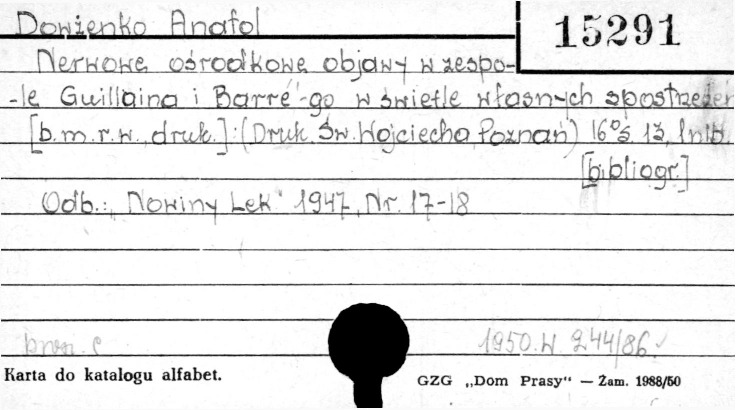 Dowżenko Anatol
15291
Nerwowe ośrodkowe objawy w zespo-
-le Guillaina i Barré-go w świetle własnych spostrzeżeń
[b.m.r.w. druk.]: (Druk. Św. Wojciecha, Poznań) 16° s. 13, 1 nlb.
[bibliogr.]
Odb.: „Nowiny Lek” 1947, Nr. 17-18
1950.W.244/86.
Karta do katalogu alfabet.
GZG „Dom Prasy“ — Żam. 1988/50